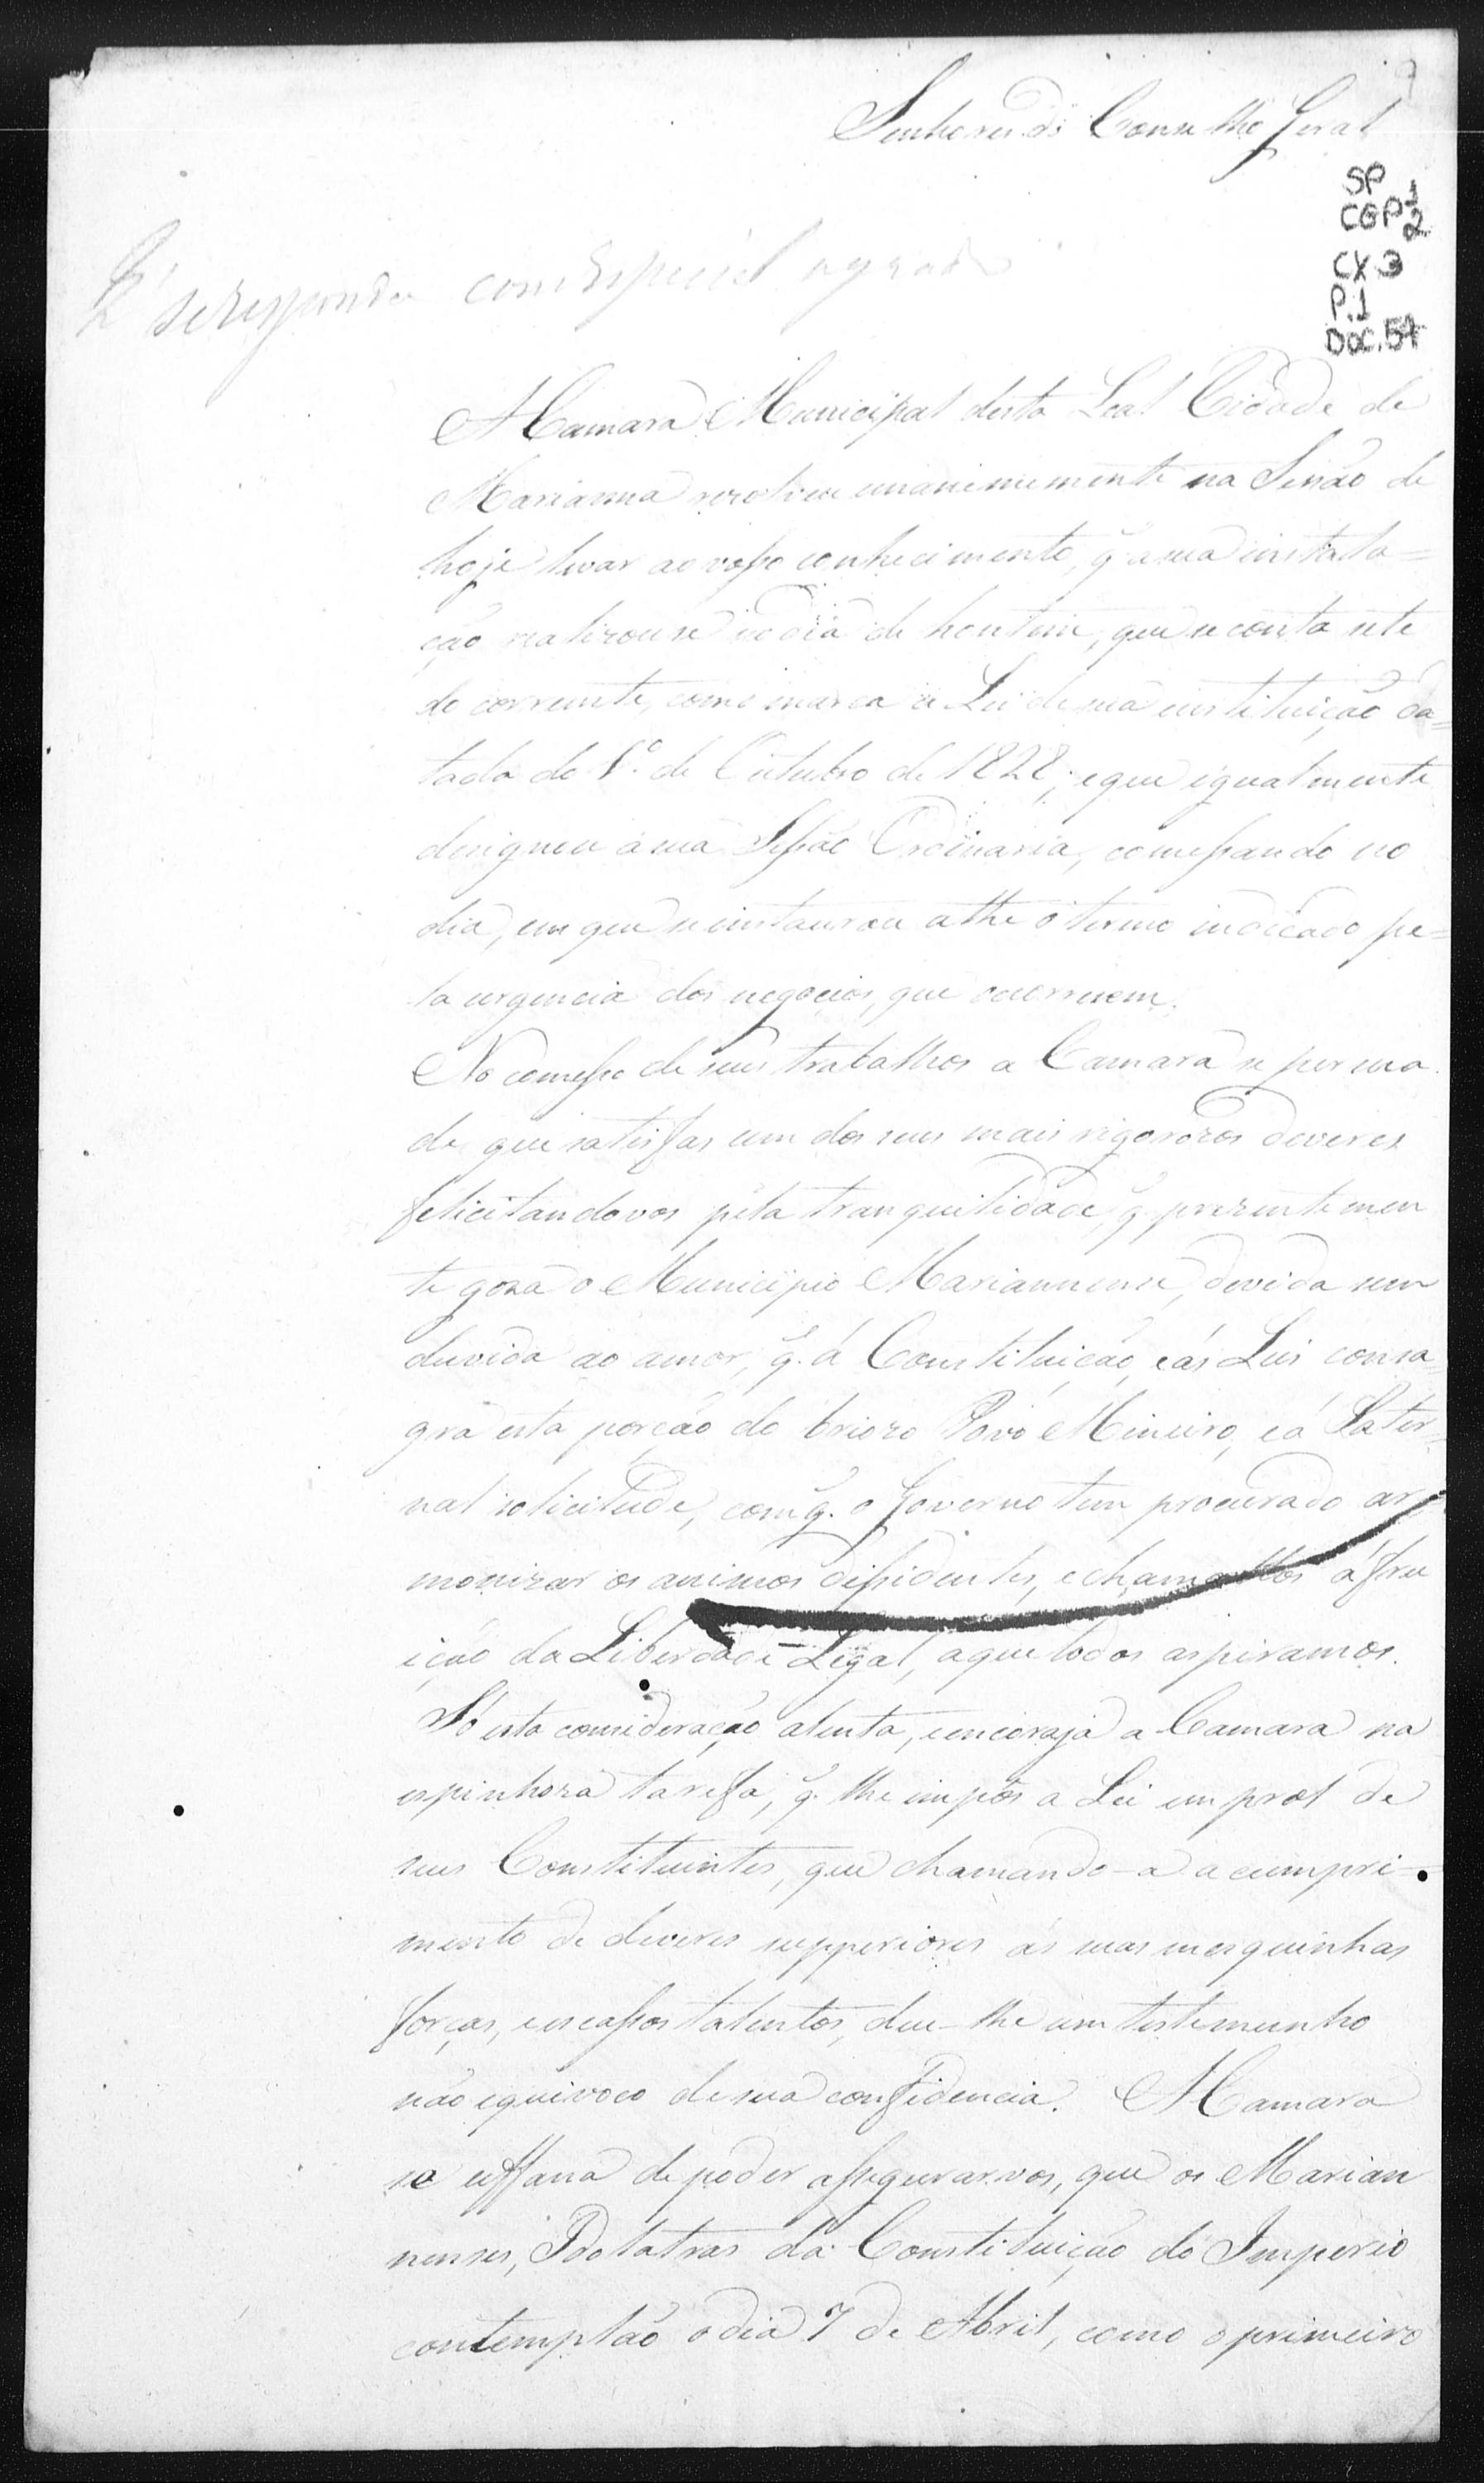 Senhores do Conselho Geral
SP
CGP 1
2
CX 3
P.1
DOC. 57
se responda com especial agrado
A Camara Municipal desta Leal Cidade de
Marianna rezolveu unanimemente na Sessão de
hoje levar ao vosso conhecimento, q̃ a sua instala=
ção realizou se no dia de hontem, que se conta sete
do corrente, como marca a Lei de sua instituição da=
tada do 1º. de Outubro de 1828; e que igualmente
designou a sua Sessão Ordinaria, comessando no
dia, em que se instaurou athe o termo indicado pe=
la urgencia dos negocios, que ocorrerem.
No comesso de seus trabalhos a Camara se persua
de que satisfas um dos seus mais rigorozos deveres
felicitandovos pela tranquilidade, q̃ prezentemen
te goza o Municipio Mariannense, devida sem
duvida ao amor, q̃. á Constituição, e ás Leis consa
gra esta porção do briozo Povo Mineiro, e á Pater=
nal solicitude, com q̃. o Governo tem procurado ar
monizar os animos dissidentes, e chamallos á fru
ição da Liberdade Legal, a que todos aspiramos.
Só esta consideração alenta, e encoraja a Camara na
espinhoza tarefa, q̃. lhe impôs a Lei em prol de
seus Constituintes, que chamando-a a cumpri-
mento de deveres supperiores ás suas mesquinhas
forças, e escassos talentos, deu-lhe um testemunho
não equivoco de sua confidencia. A Camara
se uffana de poder assegurar vos, que os Marian
nenses, Idolatras da Constituição do Imperio
contemplão o dia 7 de Abril, como o primeiro